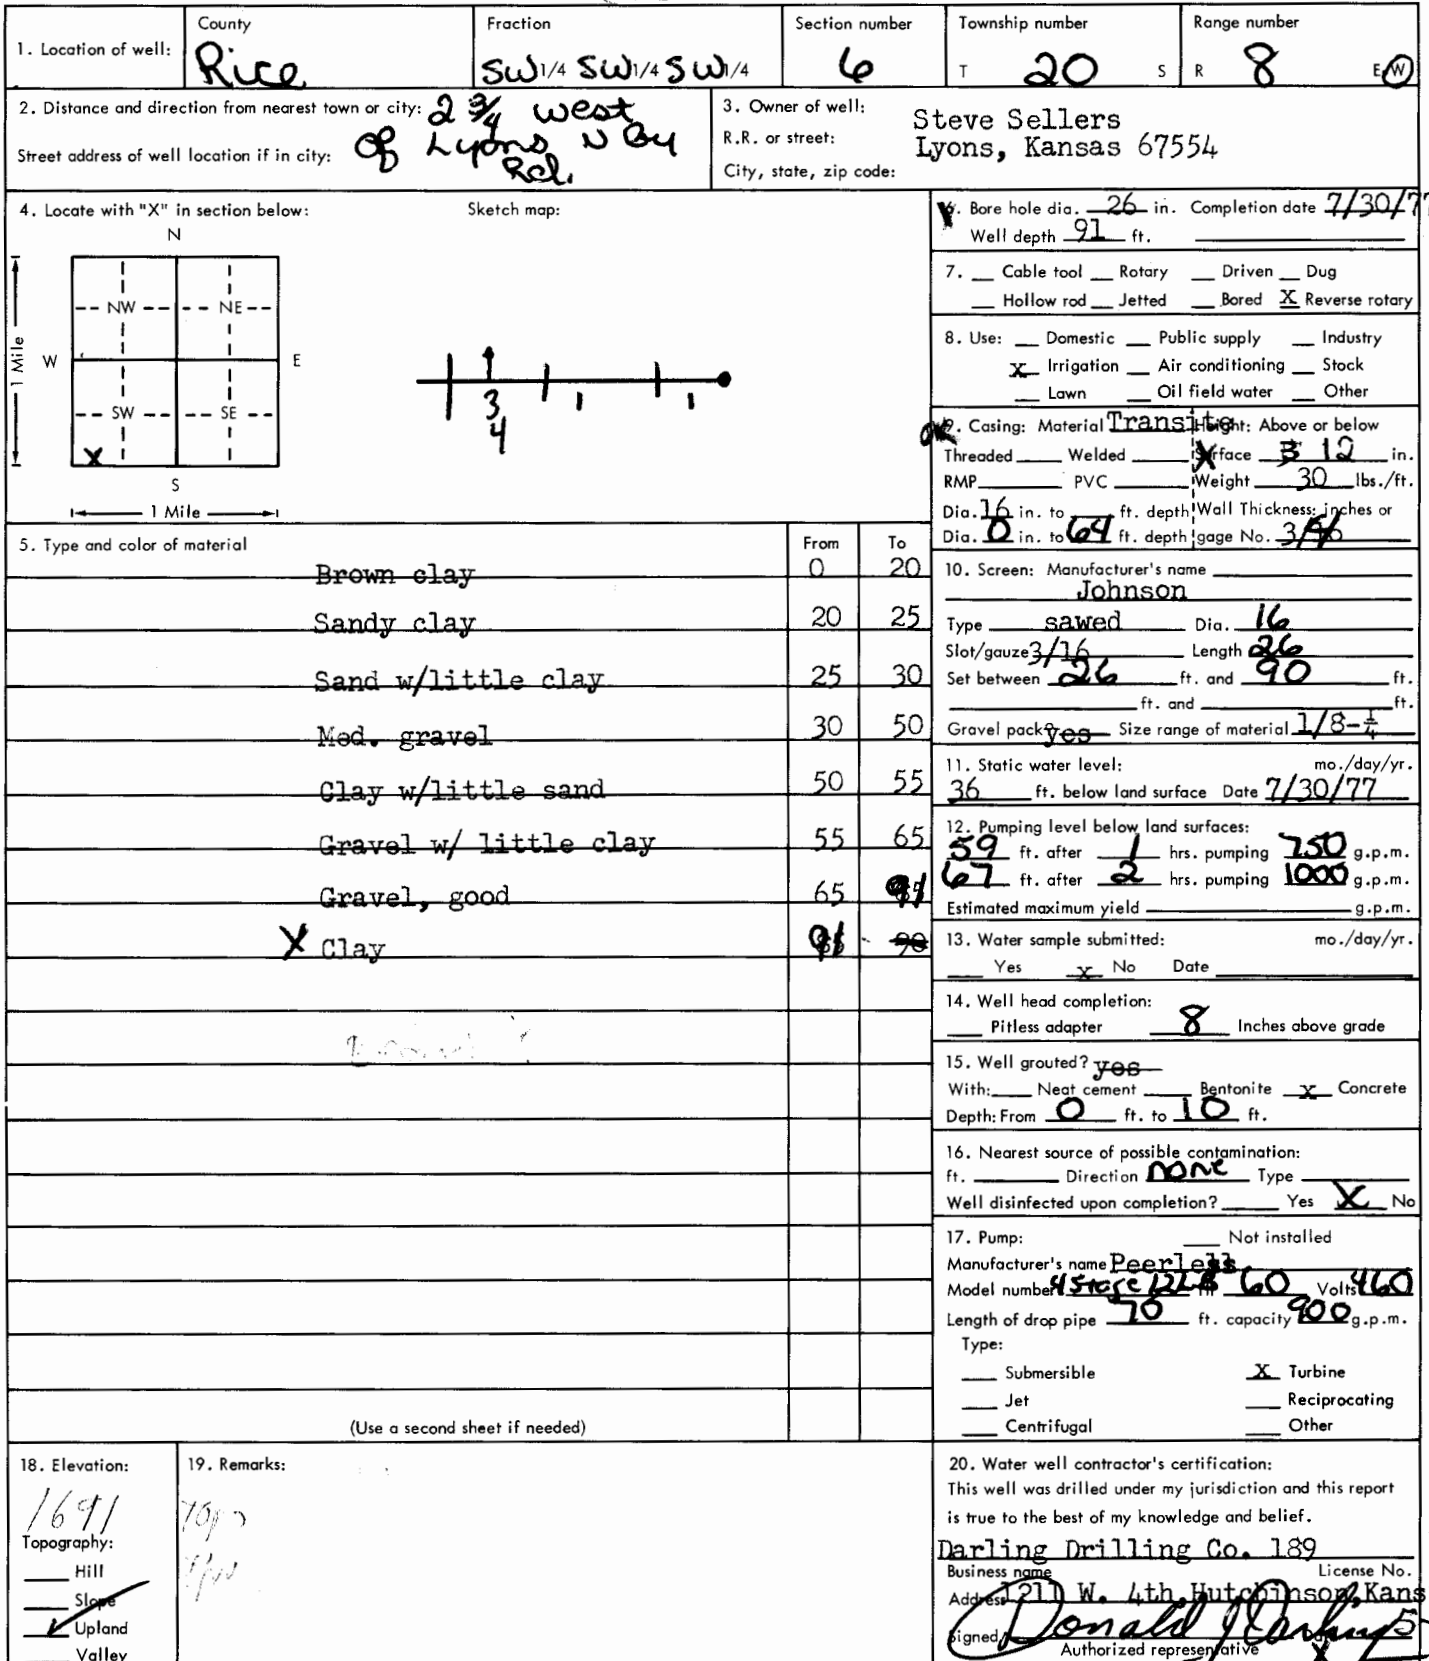 1. Location of well:
County
Rice
Fraction
SW 1/4 SW 1/4 SW 1/4
Section number
6
Township number
T 20 S
Range number
R 8 E/W
2. Distance and direction from nearest town or city: 2 3/4 west
of Lyons N By
Rd.
Street address of well location if in city:
3. Owner of well:
R.R. or street:
City, state, zip code:
Steve Sellers
Lyons, Kansas 67554
4. Locate with "X" in section below:
Sketch map:
N
NW NE
1 Mile
W E
SW SE
X
S
1 Mile
3 1 1
4
5. Type and color of material From To
Brown clay 0 20
Sandy clay 20 25
Sand w/little clay 25 30
Med. gravel 30 50
Clay w/little sand 50 55
Gravel w/ little clay 55 65
Gravel, good 65 91
X Clay 91 90
(Use a second sheet if needed)
6. Bore hole dia. 26 in. Completion date 7/30/77
Well depth 91 ft.
7. Cable tool Rotary Driven Dug
Hollow rod Jetted Bored X Reverse rotary
8. Use: Domestic Public supply Industry
X Irrigation Air conditioning Stock
Lawn Oil field water Other
9. Casing: Material Transite Height: Above or below
Threaded Welded Surface 12 in.
RMP PVC Weight 30 lbs./ft.
Dia. 16 in. to ft. depth Wall Thickness: inches or
Dia. 0 in. to 64 ft. depth gage No.
10. Screen: Manufacturer's name
Johnson
Type sawed Dia. 16
Slot/gauze 3/16 Length 26
Set between 26 ft. and 90 ft.
ft. and ft.
Gravel pack? yes Size range of material 1/8-1/4
11. Static water level: mo./day/yr.
36 ft. below land surface Date 7/30/77
12. Pumping level below land surfaces:
59 ft. after 1 hrs. pumping 750 g.p.m.
67 ft. after 2 hrs. pumping 1000 g.p.m.
Estimated maximum yield g.p.m.
13. Water sample submitted: mo./day/yr.
Yes x No Date
14. Well head completion:
Pitless adapter 8 Inches above grade
15. Well grouted? yes
With: Neat cement Bentonite x Concrete
Depth: From 0 ft. to 10 ft.
16. Nearest source of possible contamination:
ft. Direction none Type
Well disinfected upon completion? Yes X No
17. Pump: Not installed
Manufacturer's name Peerless
Model number 4 Stage 12LB HP 60 Volts 460
Length of drop pipe 70 ft. capacity 900 g.p.m.
Type:
Submersible X Turbine
Jet Reciprocating
Centrifugal Other
18. Elevation:
1691
Topography:
Hill
Slope
Upland
Valley
19. Remarks:
20. Water well contractor's certification:
This well was drilled under my jurisdiction and this report
is true to the best of my knowledge and belief.
Darling Drilling Co. 189
Business name License No.
Address 1211 W. 4th, Hutchinson, Kans
Signed Donald J Darling
Authorized representative